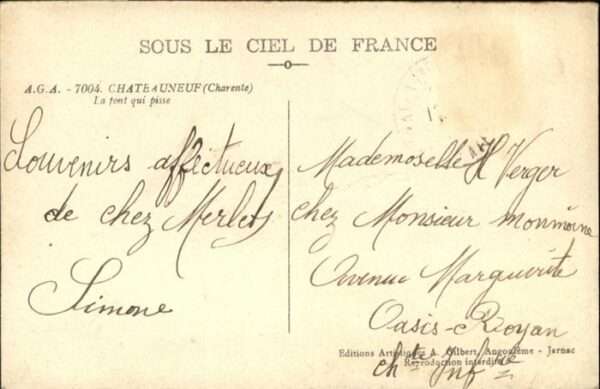 SOUS LE CIEL DE FRANCE
A.G.A. - 7004. CHATEAUNEUF (Charente)
La font qui pisse
Souvenirs affectueux
de chez Merlet
Simone
Mademoiselle H Verger
chez Monsieur monmoine
Avenue Marguerite
Oasis-Royan
chte Infre
Editions Artistiques A. Gilbert, Angoulême - Jarnac
Reproduction interdite